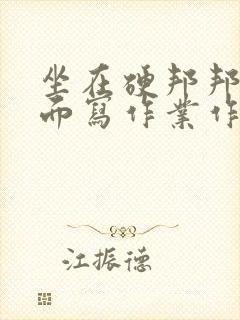 坐在硬邦邦
而寫作業作
江振德